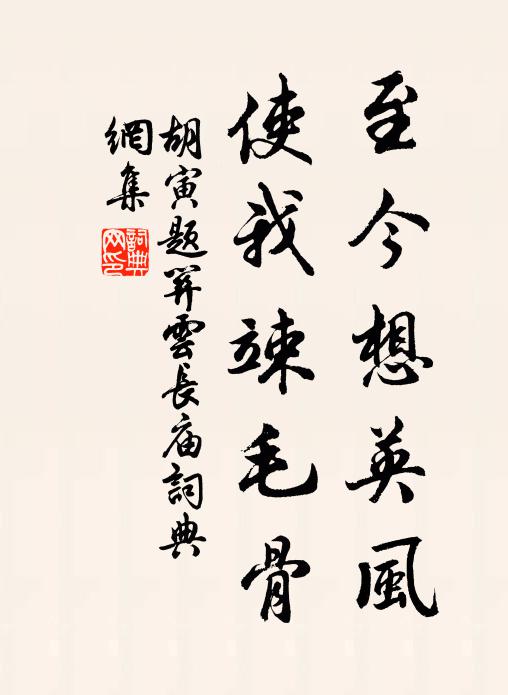 至今想英風
使我竦毛骨
胡寅题关雲長庙詞典
網集
詞典網印